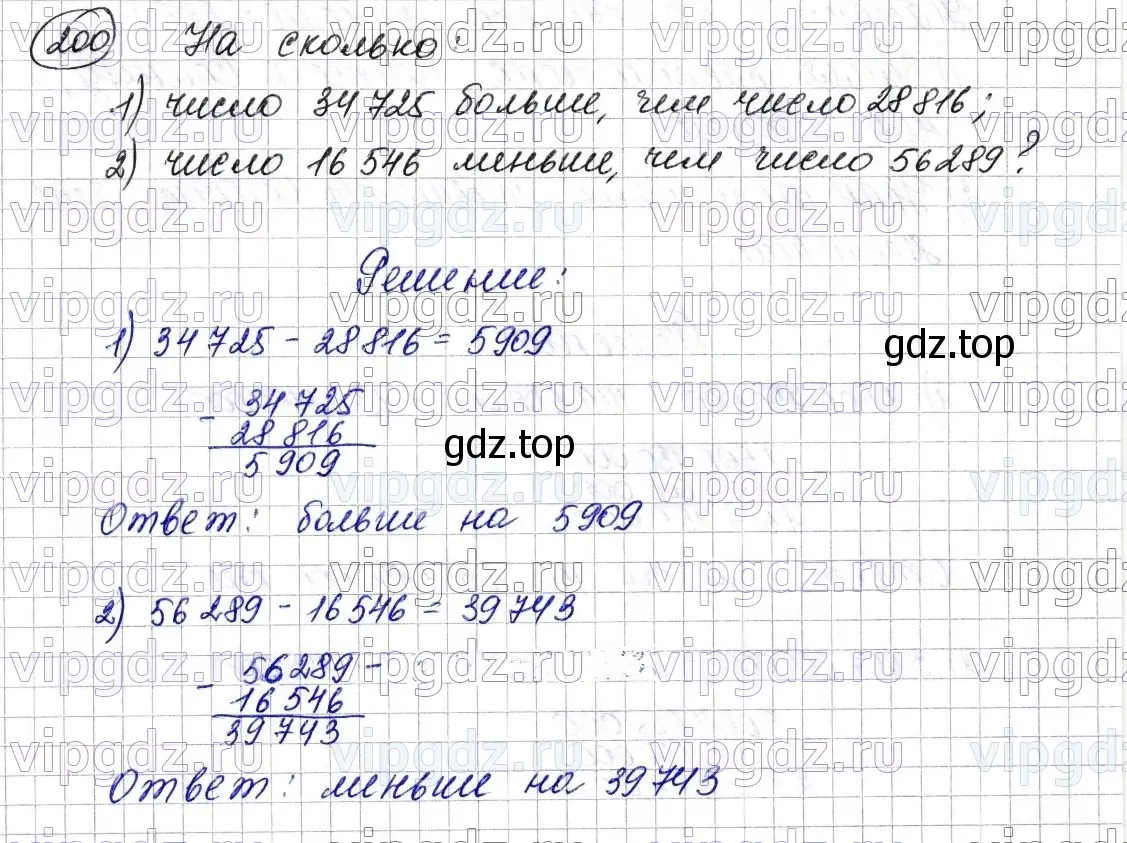 200 На сколько:
1) число 34 725 больше, чем число 28 816;
2) число 16 546 меньше, чем число 56 289?
Решение:
1) 34 725 - 28 816 = 5 909
gdz.top
- 34 725
28 816
gdz.top
5 909
Ответ: больше на 5 909
2) 56 289 - 16 546 = 39 743
- 56 289 -
16 546
39 743
Ответ: меньше на 39 743
vipgdz.ru